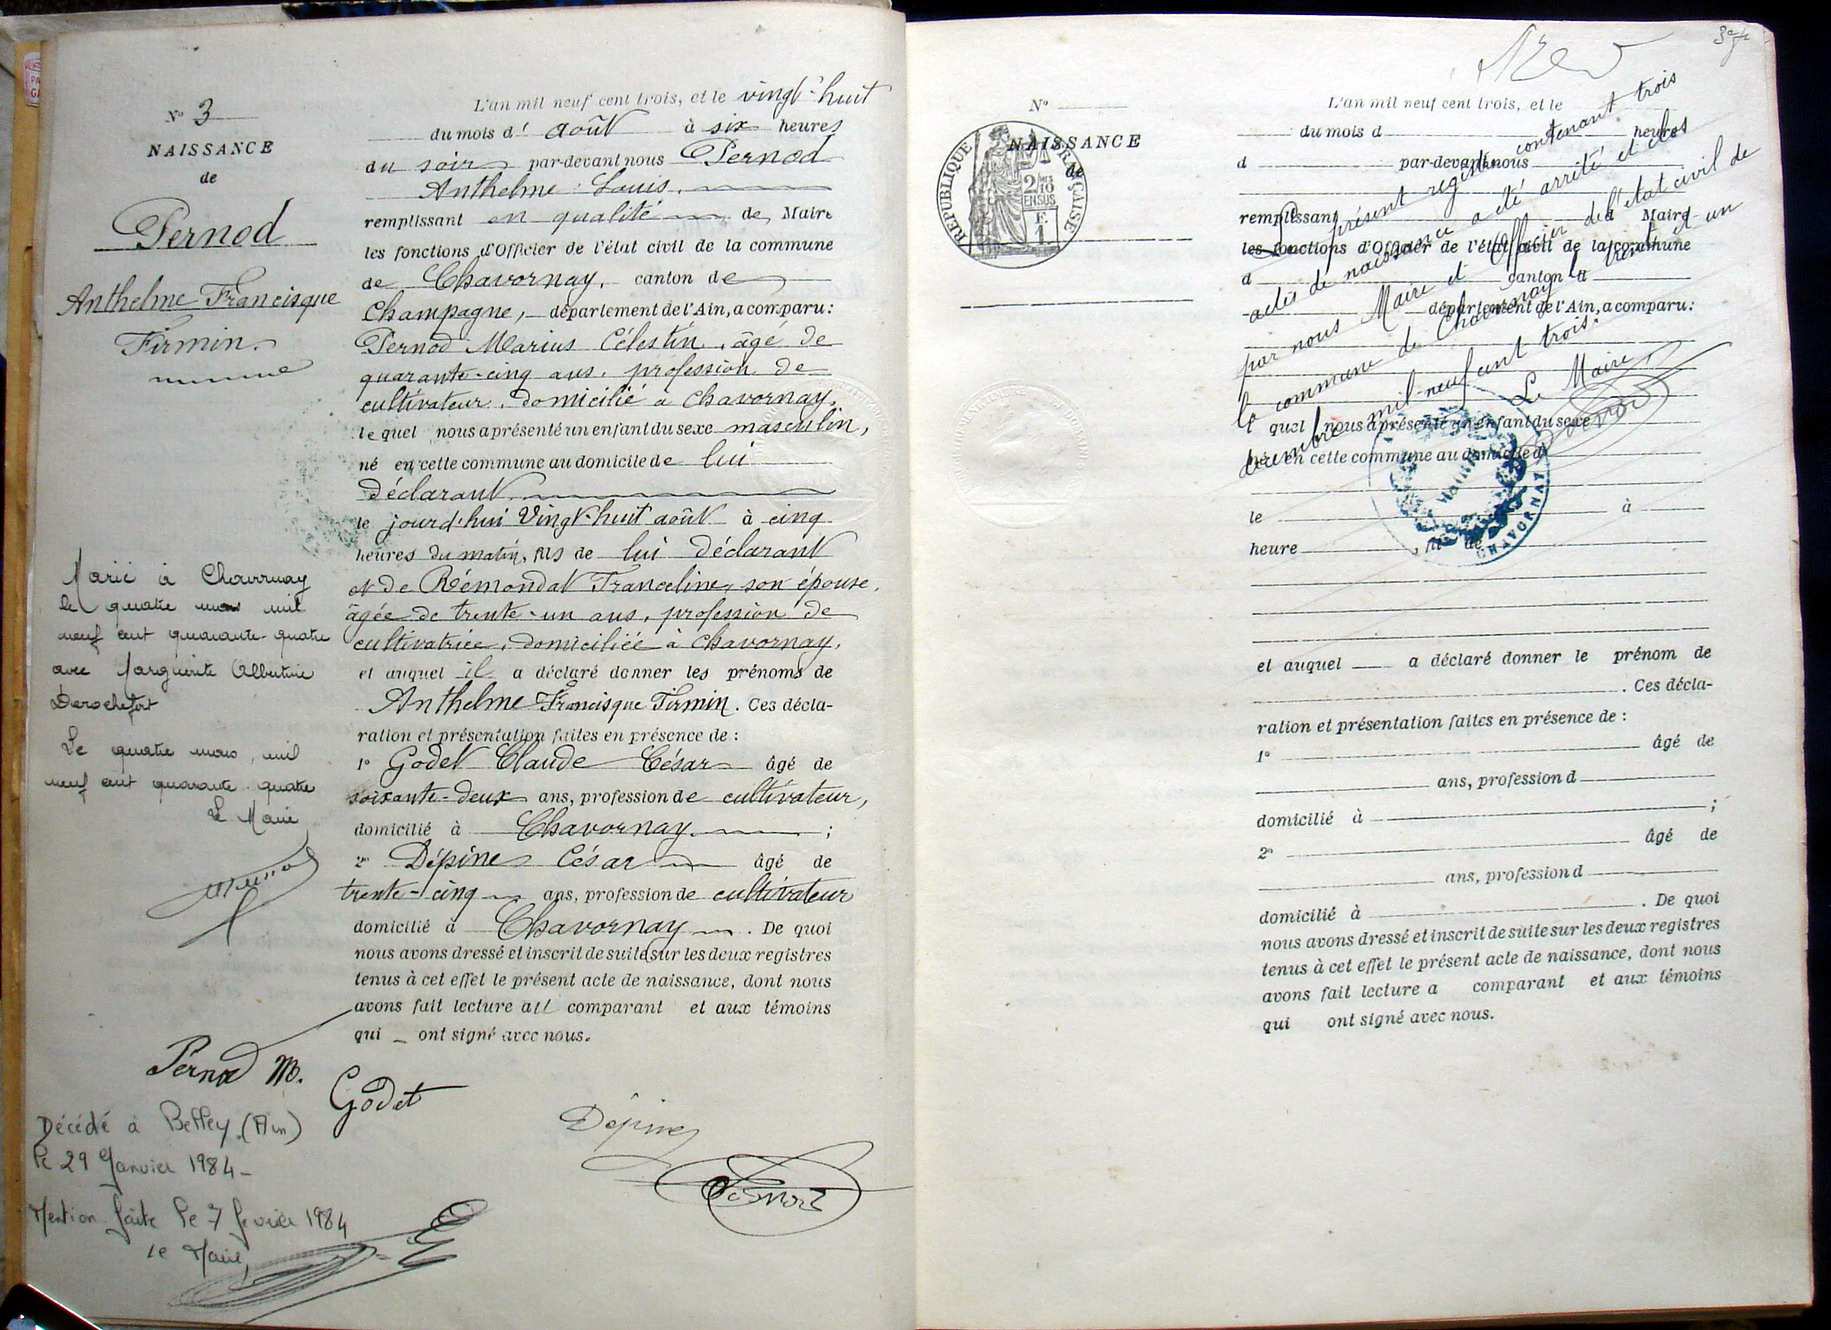 N° 3
NAISSANCE
de
Pernod
Anthelme Francisque
Firmin.
L'an mil neuf cent trois, et le vingt-huit
du mois d' août à six heures
du soir par-devant nous Pernod
Anthelme Louis.
remplissant en qualité de Maire
les fonctions d'Officier de l'état civil de la commune
de Chavornay, canton de
Champagne, département de l'Ain, a comparu:
Pernod Marius Célestin, âgé de
quarante-cinq ans, profession de
cultivateur, domicilié à Chavornay,
lequel nous a présenté un enfant du sexe masculin,
né en cette commune au domicile de lui
déclarant
le jourd'hui vingt-huit août à cinq
heures du matin, fils de lui déclarant
et de Rémondat Franceline, son épouse,
âgée de trente-un ans, profession de
cultivatrice, domiciliée à Chavornay,
et auquel il a déclaré donner les prénoms de
Anthelme Francisque Firmin. Ces décla-
ration et présentation faites en présence de :
1° Godet Claude César âgé de
soixante-deux ans, profession de cultivateur,
domicilié à Chavornay ;
2° Dépine César âgé de
trente-cinq ans, profession de cultivateur
domicilié à Chavornay. De quoi
nous avons dressé et inscrit de suite sur les deux registres
tenus à cet effet le présent acte de naissance, dont nous
avons fait lecture au comparant et aux témoins
qui ont signé avec nous.
Marié à Chavornay
le quatre mars mil
neuf cent quarante-quatre
avec Marguerite Albertine
Derochefort
Le quatre mars mil
neuf cent quarante quatre
Le Maire
Pernod M.
Godet
Dépine
Pernod
Décédé à Belley (Ain)
le 29 Janvier 1984
Mention faite le 7 février 1984
Le Maire,
N°
NAISSANCE
de
RÉPUBLIQUE FRANÇAISE
2/10
EN SUS
F.
1
L'an mil neuf cent trois, et le
du mois d heures
d par-devant nous
remplissant d Maire
les fonctions d'Officier de l'état civil de la commune
d canton d
département de l'Ain, a comparu:
l quel nous a présenté un enfant du sexe
né en cette commune au domicile d
le à
heure , fil de
et auquel a déclaré donner le prénom de
. Ces décla-
ration et présentation faites en présence de :
1° âgé de
ans, profession d
domicilié à ;
2° âgé de
ans, profession d
domicilié à . De quoi
nous avons dressé et inscrit de suite sur les deux registres
tenus à cet effet le présent acte de naissance, dont nous
avons fait lecture a comparant et aux témoins
qui ont signé avec nous.
Le présent registre contenant trois
actes de naissance a été arrêté et clos
par nous Maire et Officier de l'état civil de
la commune de Chavornay le trente-un
décembre mil-neuf cent trois.
Le Maire
MAIRIE
CHAVORNAY